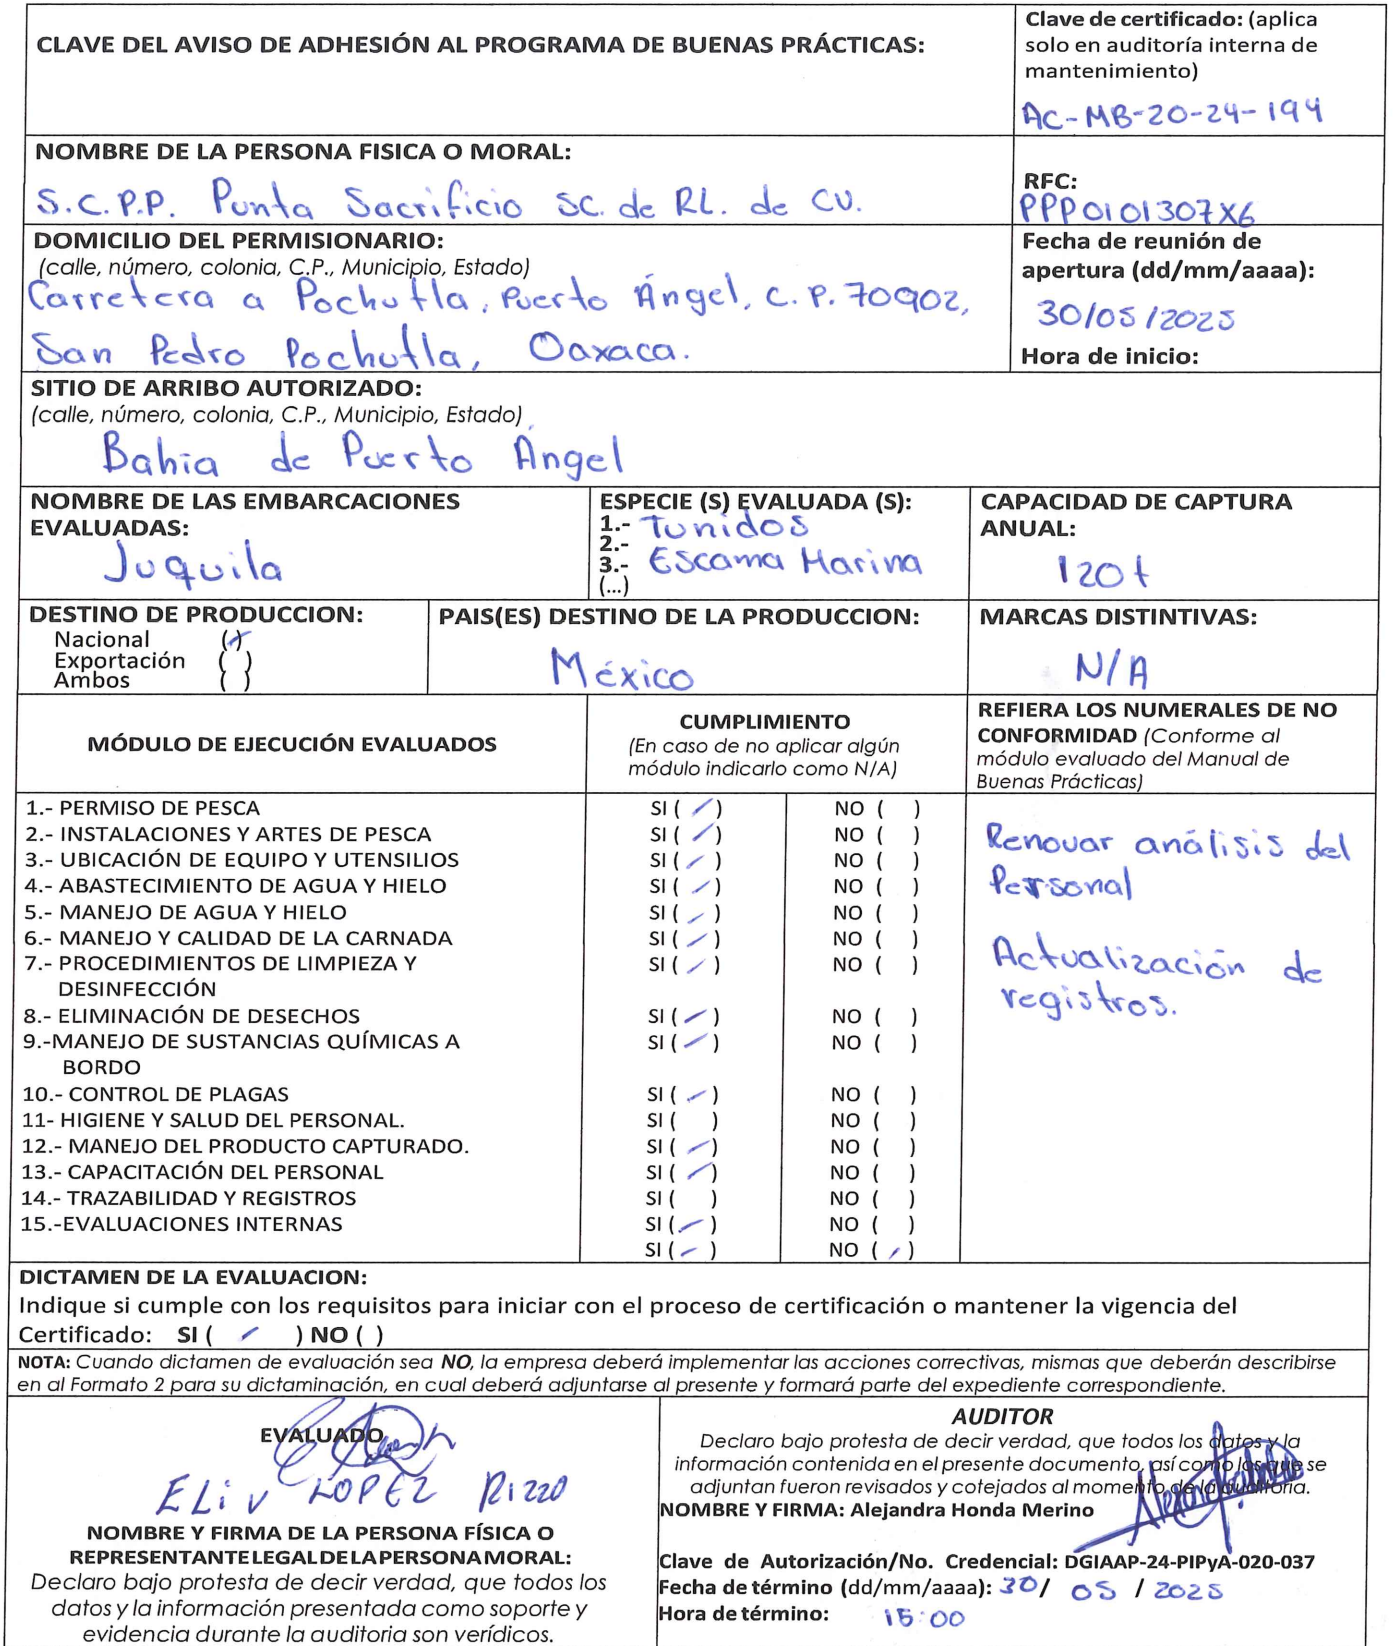 CLAVE DEL AVISO DE ADHESIÓN AL PROGRAMA DE BUENAS PRÁCTICAS:
Clave de certificado: (aplica
solo en auditoría interna de
mantenimiento)
AC-MB-20-24-194
NOMBRE DE LA PERSONA FISICA O MORAL:
S.C.P.P. Punta Sacrificio SC. de RL. de CV.
RFC:
PPP0101307X6
DOMICILIO DEL PERMISIONARIO:
(calle, número, colonia, C.P., Municipio, Estado)
Carretera a Pochutla, Puerto Ángel, C.P. 70902,
San Pedro Pochutla, Oaxaca.
Fecha de reunión de
apertura (dd/mm/aaaa):
30/05/2025
Hora de inicio:
SITIO DE ARRIBO AUTORIZADO:
(calle, número, colonia, C.P., Municipio, Estado)
Bahia de Puerto Ángel
NOMBRE DE LAS EMBARCACIONES
EVALUADAS:
Juquila
ESPECIE (S) EVALUADA (S):
1.- Tunidos
2.-
3.- Escama Marina
(...)
CAPACIDAD DE CAPTURA
ANUAL:
120 t
DESTINO DE PRODUCCION:
Nacional (/)
Exportación ( )
Ambos ( )
PAIS(ES) DESTINO DE LA PRODUCCION:
México
MARCAS DISTINTIVAS:
N/A
MÓDULO DE EJECUCIÓN EVALUADOS
CUMPLIMIENTO
(En caso de no aplicar algún
módulo indicarlo como N/A)
REFIERA LOS NUMERALES DE NO
CONFORMIDAD (Conforme al
módulo evaluado del Manual de
Buenas Prácticas)
1.- PERMISO DE PESCA SI ( / ) NO ( )
2.- INSTALACIONES Y ARTES DE PESCA SI ( / ) NO ( )
3.- UBICACIÓN DE EQUIPO Y UTENSILIOS SI ( / ) NO ( )
4.- ABASTECIMIENTO DE AGUA Y HIELO SI ( / ) NO ( )
5.- MANEJO DE AGUA Y HIELO SI ( / ) NO ( )
6.- MANEJO Y CALIDAD DE LA CARNADA SI ( / ) NO ( )
7.- PROCEDIMIENTOS DE LIMPIEZA Y SI ( / ) NO ( )
DESINFECCIÓN
8.- ELIMINACIÓN DE DESECHOS SI ( / ) NO ( )
9.-MANEJO DE SUSTANCIAS QUÍMICAS A SI ( / ) NO ( )
BORDO
10.- CONTROL DE PLAGAS SI ( / ) NO ( )
11- HIGIENE Y SALUD DEL PERSONAL. SI ( ) NO ( )
12.- MANEJO DEL PRODUCTO CAPTURADO. SI ( / ) NO ( )
13.- CAPACITACIÓN DEL PERSONAL SI ( / ) NO ( )
14.- TRAZABILIDAD Y REGISTROS SI ( ) NO ( )
15.-EVALUACIONES INTERNAS SI ( / ) NO ( )
SI ( / ) NO ( / )
Renovar análisis del
Personal
Actualización de
registros.
DICTAMEN DE LA EVALUACION:
Indique si cumple con los requisitos para iniciar con el proceso de certificación o mantener la vigencia del
Certificado: SI ( / ) NO ( )
NOTA: Cuando dictamen de evaluación sea NO, la empresa deberá implementar las acciones correctivas, mismas que deberán describirse
en al Formato 2 para su dictaminación, en cual deberá adjuntarse al presente y formará parte del expediente correspondiente.
EVALUADO
ELiv LOPEZ Rizzo
NOMBRE Y FIRMA DE LA PERSONA FÍSICA O
REPRESENTANTE LEGAL DE LA PERSONA MORAL:
Declaro bajo protesta de decir verdad, que todos los
datos y la información presentada como soporte y
evidencia durante la auditoria son verídicos.
AUDITOR
Declaro bajo protesta de decir verdad, que todos los datos y la
información contenida en el presente documento, así como los que se
adjuntan fueron revisados y cotejados al momento de la auditoria.
NOMBRE Y FIRMA: Alejandra Honda Merino
Clave de Autorización/No. Credencial: DGIAAP-24-PIPyA-020-037
Fecha de término (dd/mm/aaaa): 30/ 05 / 2025
Hora de término: 15:00